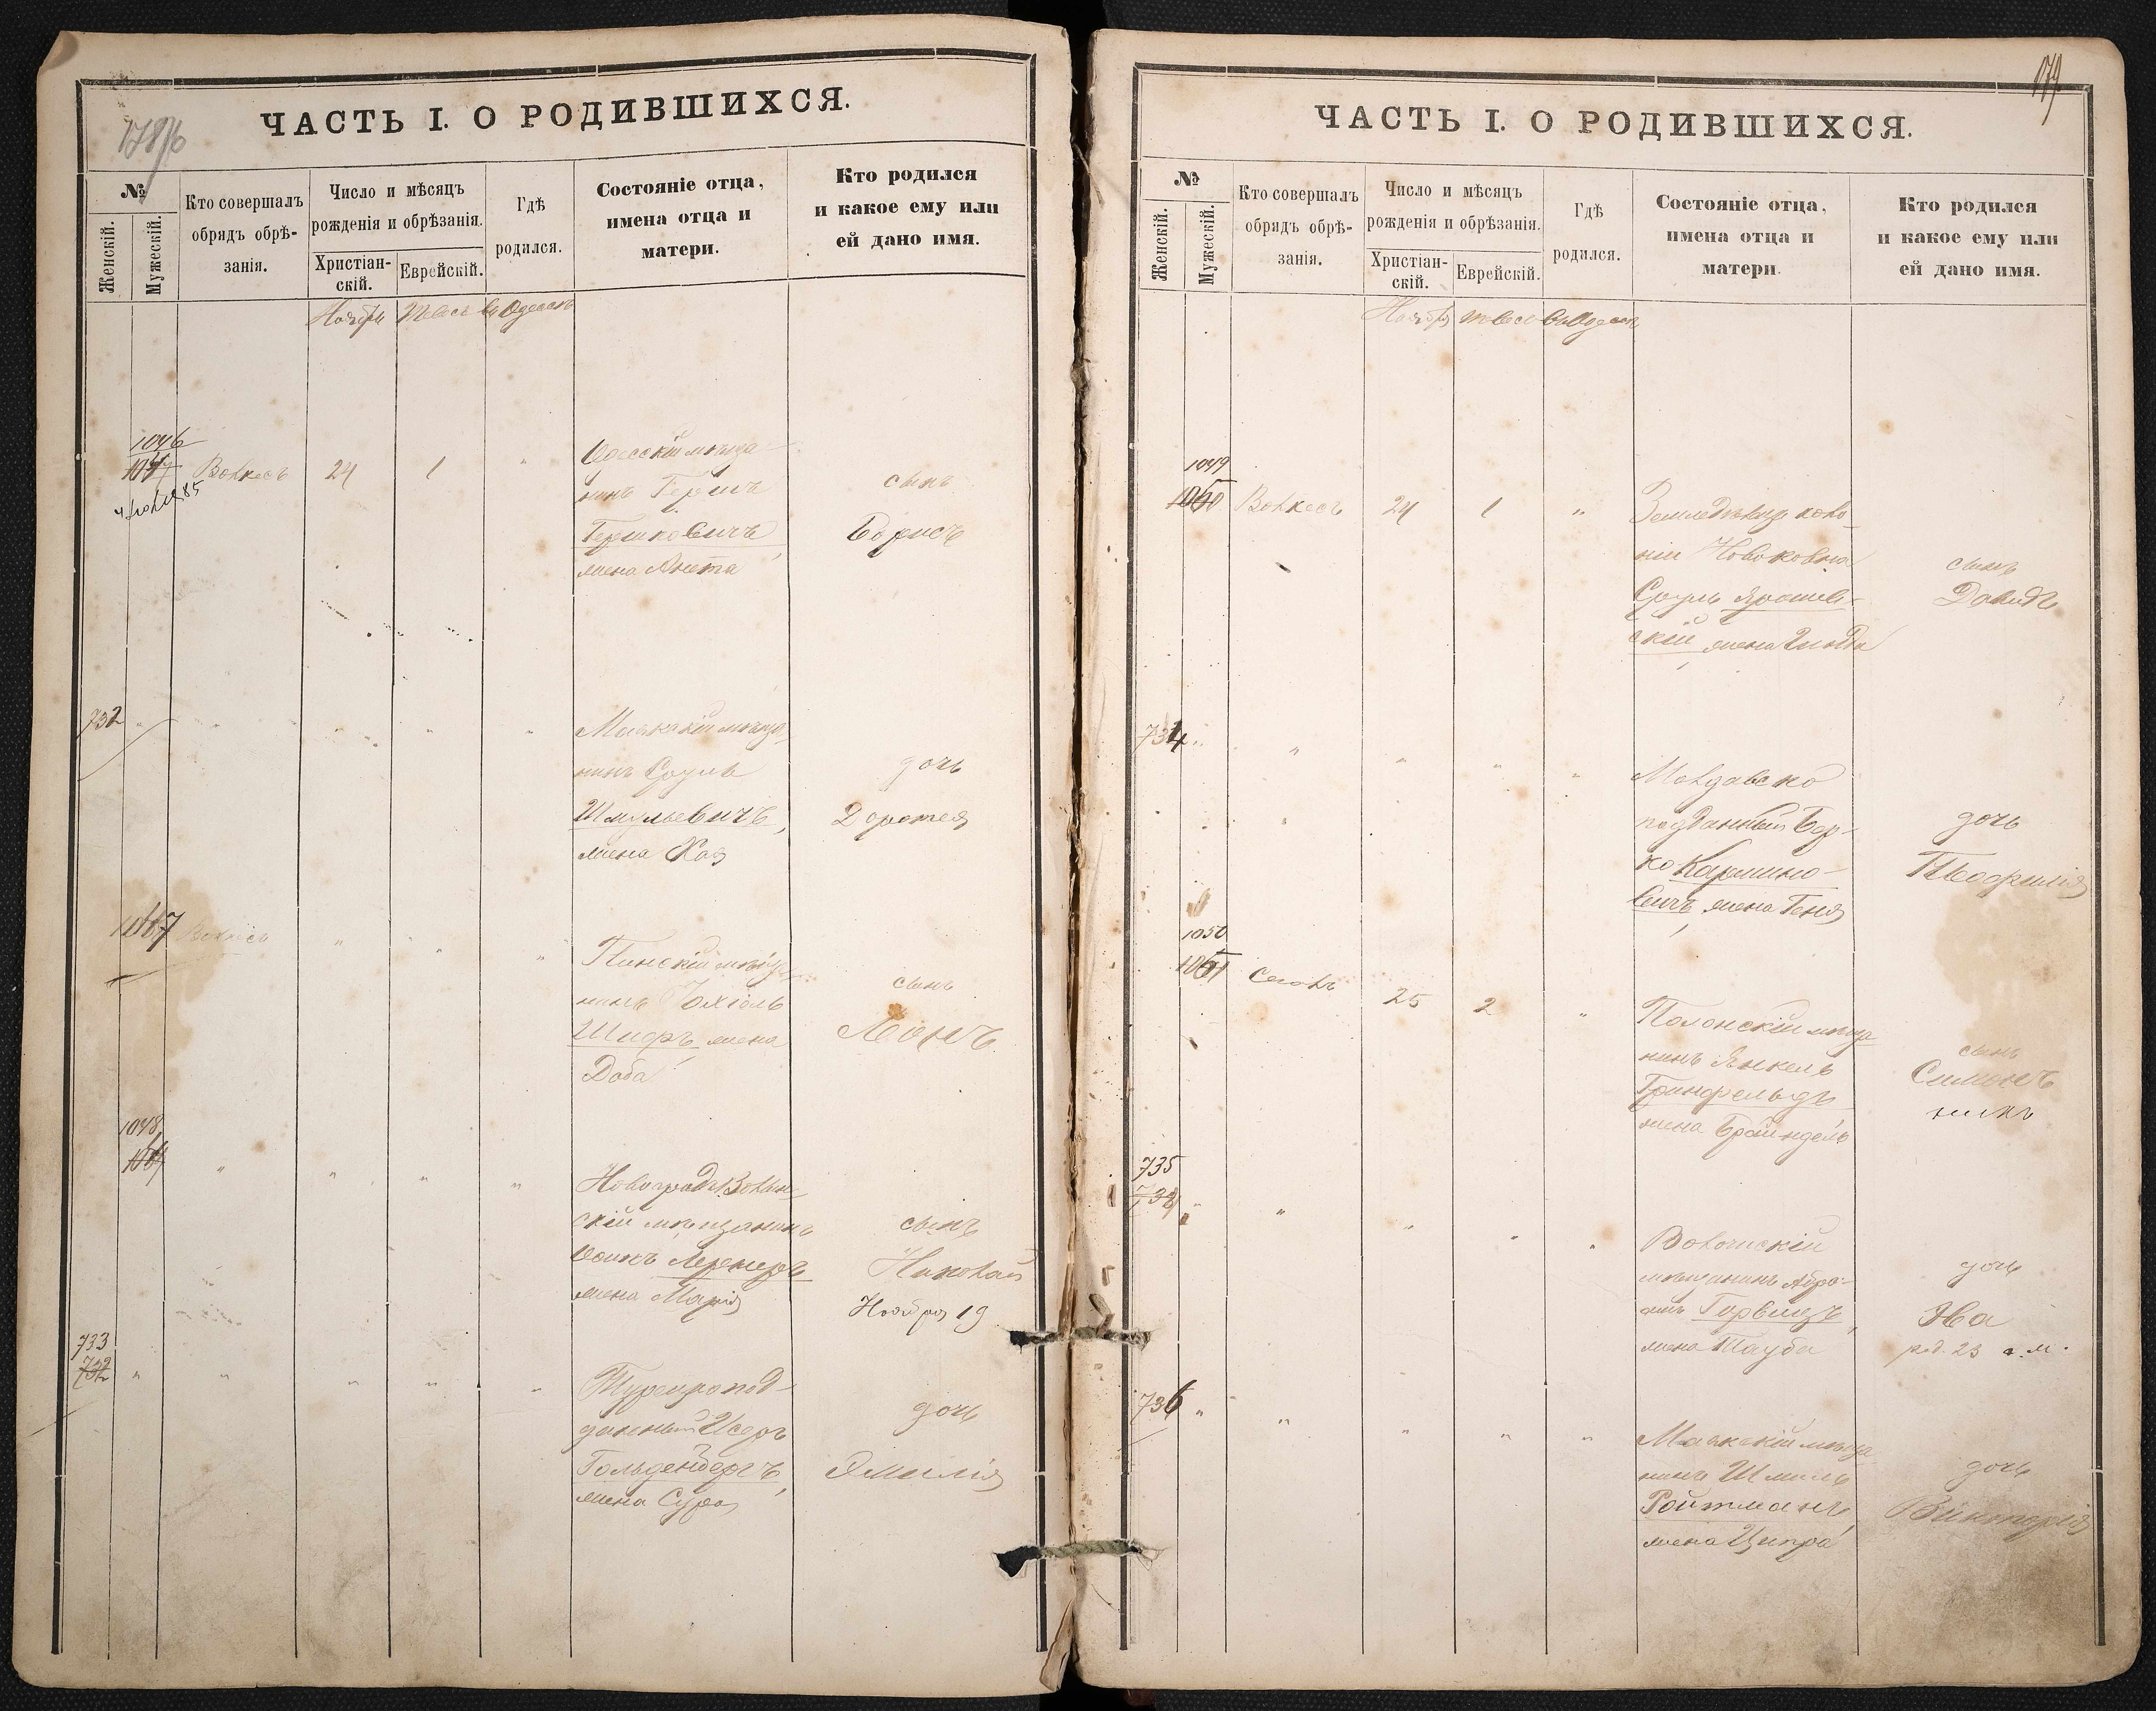 ЧАСТЬ I. О РОДИВШИХСЯ.
№
Женскій.
Мужескій.
Кто совершалъ
обрядъ обрѣ-
занія.
Число и мѣсяцъ
рожденія и обрѣзанія.
Христіан-
скій.
Еврейскій.
Гдѣ
родился.
Состояніе отца,
имена отца и
матери.
Кто родился
и какое ему или
ей дано имя.
Ноябрь
въ Одессѣ
1046
Волкесъ 24 1 "
Одесскій мѣща-
нинъ Гершъ
Гершковичъ,
жена Анета
сынъ
Борисъ
732
Маякскій мѣща-
нинъ Сруль
Шмульевичъ,
жена Хая
дочь
Доротея
Волкесъ " " "
Пинскій мѣща-
нинъ
Шифръ, жена
Доба
сынъ
Леонъ
1048
" " " "
Новоградволын-
скій мѣщанинъ
Осипъ Лернеръ
жена Марія
сынъ
Николай
Ноября 19
733
732
" " " " "
Турецкоподд-
данный Исеръ
Гольденбергъ,
жена Сура
дочь
Эмилія
179
ЧАСТЬ I. О РОДИВШИХСЯ.
№
Женскій.
Мужескій.
Кто совершалъ
обрядъ обрѣ-
занія.
Число и мѣсяцъ
рожденія и обрѣзанія.
Христіан-
скій.
Еврейскій.
Гдѣ
родился.
Состояніе отца,
имена отца и
матери.
Кто родился
и какое ему или
ей дано имя.
Ноябрь
въ Одессѣ
1049
Волкесъ 24 1 "
Земледѣлецъ коло-
ніи Новоковна
Сруль Ярошев-
скій, жена
сынъ
Давидъ
734
" " " "
Молдавско
подданный Бер-
ко Кармино-
вичъ, жена Геня
дочь
Теофилія
1050
25 2 "
Полонскій мѣща-
нинъ Янкель
Гринфельдъ
жена Брайндель
сынъ
Симонъ
735
" " " " "
мѣщанинъ Абра-
амъ Гурвицъ,
жена Тауба
дочь
Эва
род. 23 с. м.
736
" " " " "
Маякскій мѣща-
нинъ Шмиль
Ройтманъ,
жена Ципра
дочь
Викторія